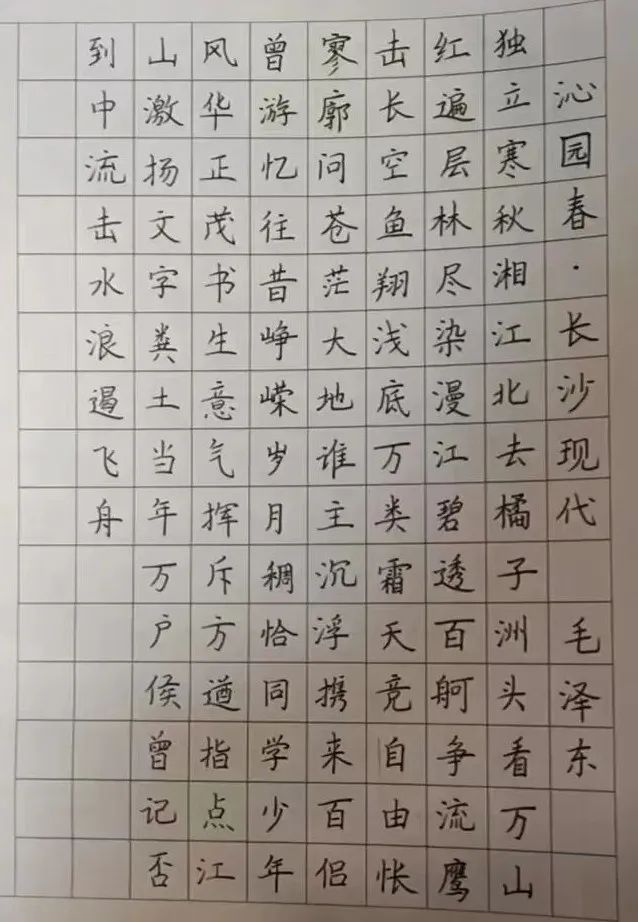 沁园春·长沙现代 毛泽东
独立寒秋湘江北去橘子洲头看万山
红遍层林尽染漫江碧透百舸争流鹰
击长空鱼翔浅底万类霜天竞自由怅
寥廓问苍茫大地谁主沉浮携来百侣
曾游忆往昔峥嵘岁月稠恰同学少年
风华正茂书生意气挥斥方遒指点江
山激扬文字粪土当年万户侯曾记否
到中流击水浪遏飞舟